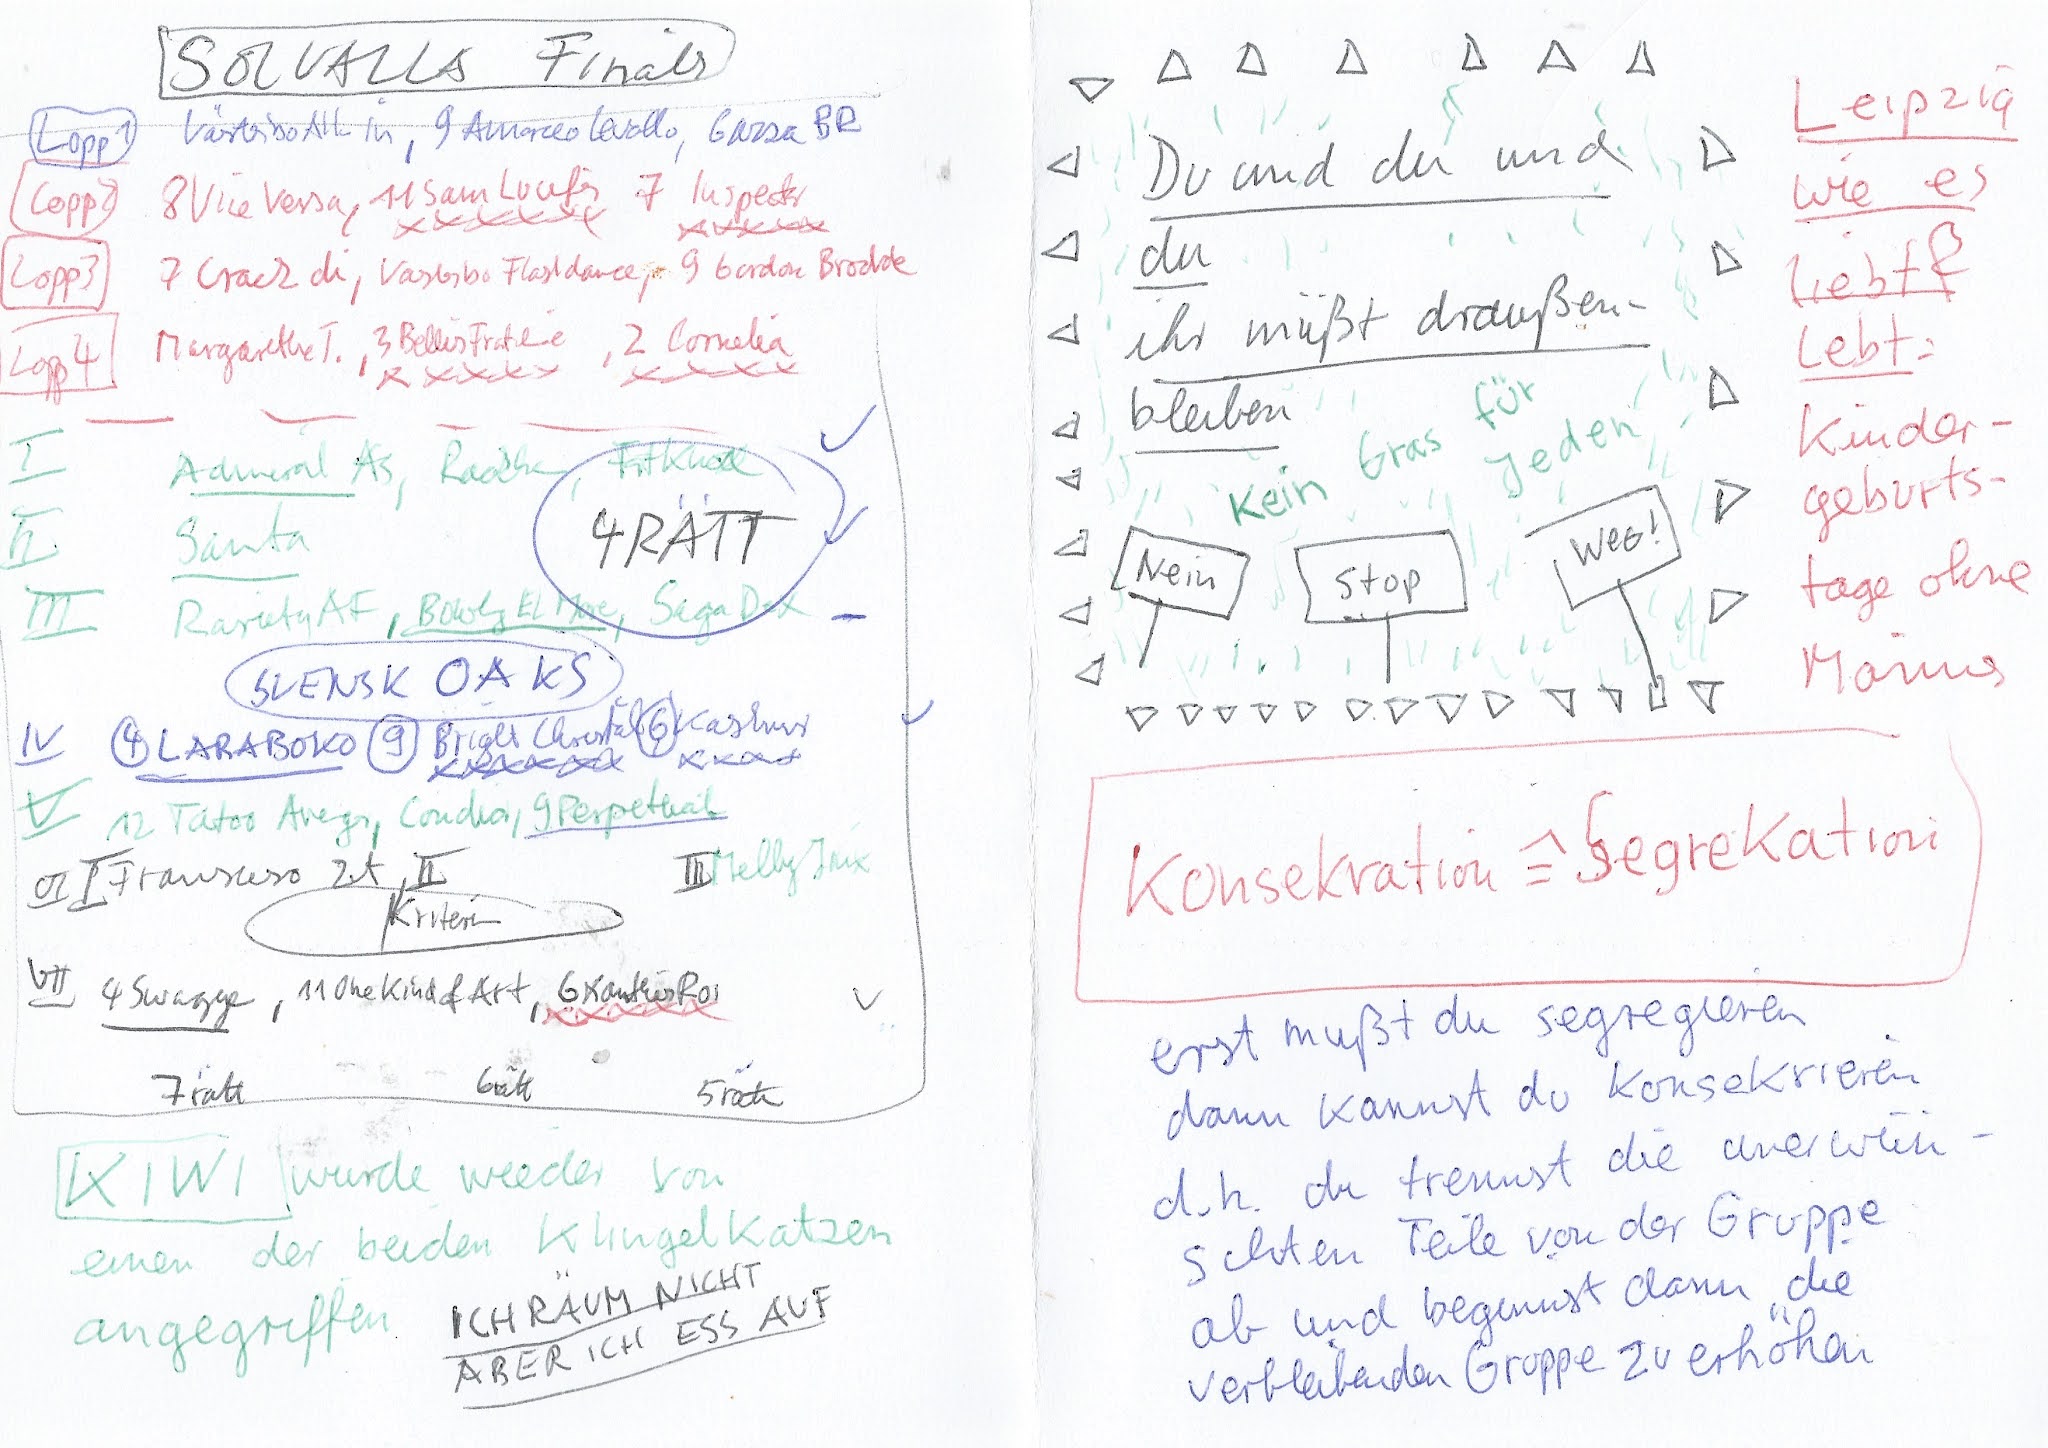 SOLVALLA Finals
Lopp 1 Västerbo All in, 9 Amareo Cevollo, 6 BR
Lopp 2 8 Vice Versa, 11 Sam Lucifer 7 Inspector
Lopp 3 7 Crack di, Västerbo Flashdance, 9 Gordon Brodde
Lopp 4 Margarethe T., 3 Bellis , 2 Cornelia
I Admiral As,
4 RÄTT
II Santa
III Rariety AF,
SVENSK OAKS
IV 4 LARABOKO 9 Bright Christal 6 Kashmir
V 12 Tatoo , 9 Perpethual
VI I II III Melby Jinx
Kriteri
VII 4 Swagge, 11 One Kind of Art, 6 Xanthis Roi
7 rätt 6 rätt 5 rätt
KIWI wurde wieder von
einen der beiden Klingelkatzen
angegriffen
ICH RÄUM NICHT
ABER ICH ESS AUF
Du und du und
du
ihr müßt draußen-
bleiben
Kein Gras für
jeden
Nein
Stop
WEG!
Leipzig
wie es
liebt &
Lebt:
Kinder-
geburts-
tage ohne
Marius
Konsekration ≙ SegreKation
erst mußt du segregieren
dann kannst du konsekrieren
d.h. du trennst die unerwün-
schten Teile von der Gruppe
ab und beginnst dann die
verbleibenden Gruppe zu erhöhen